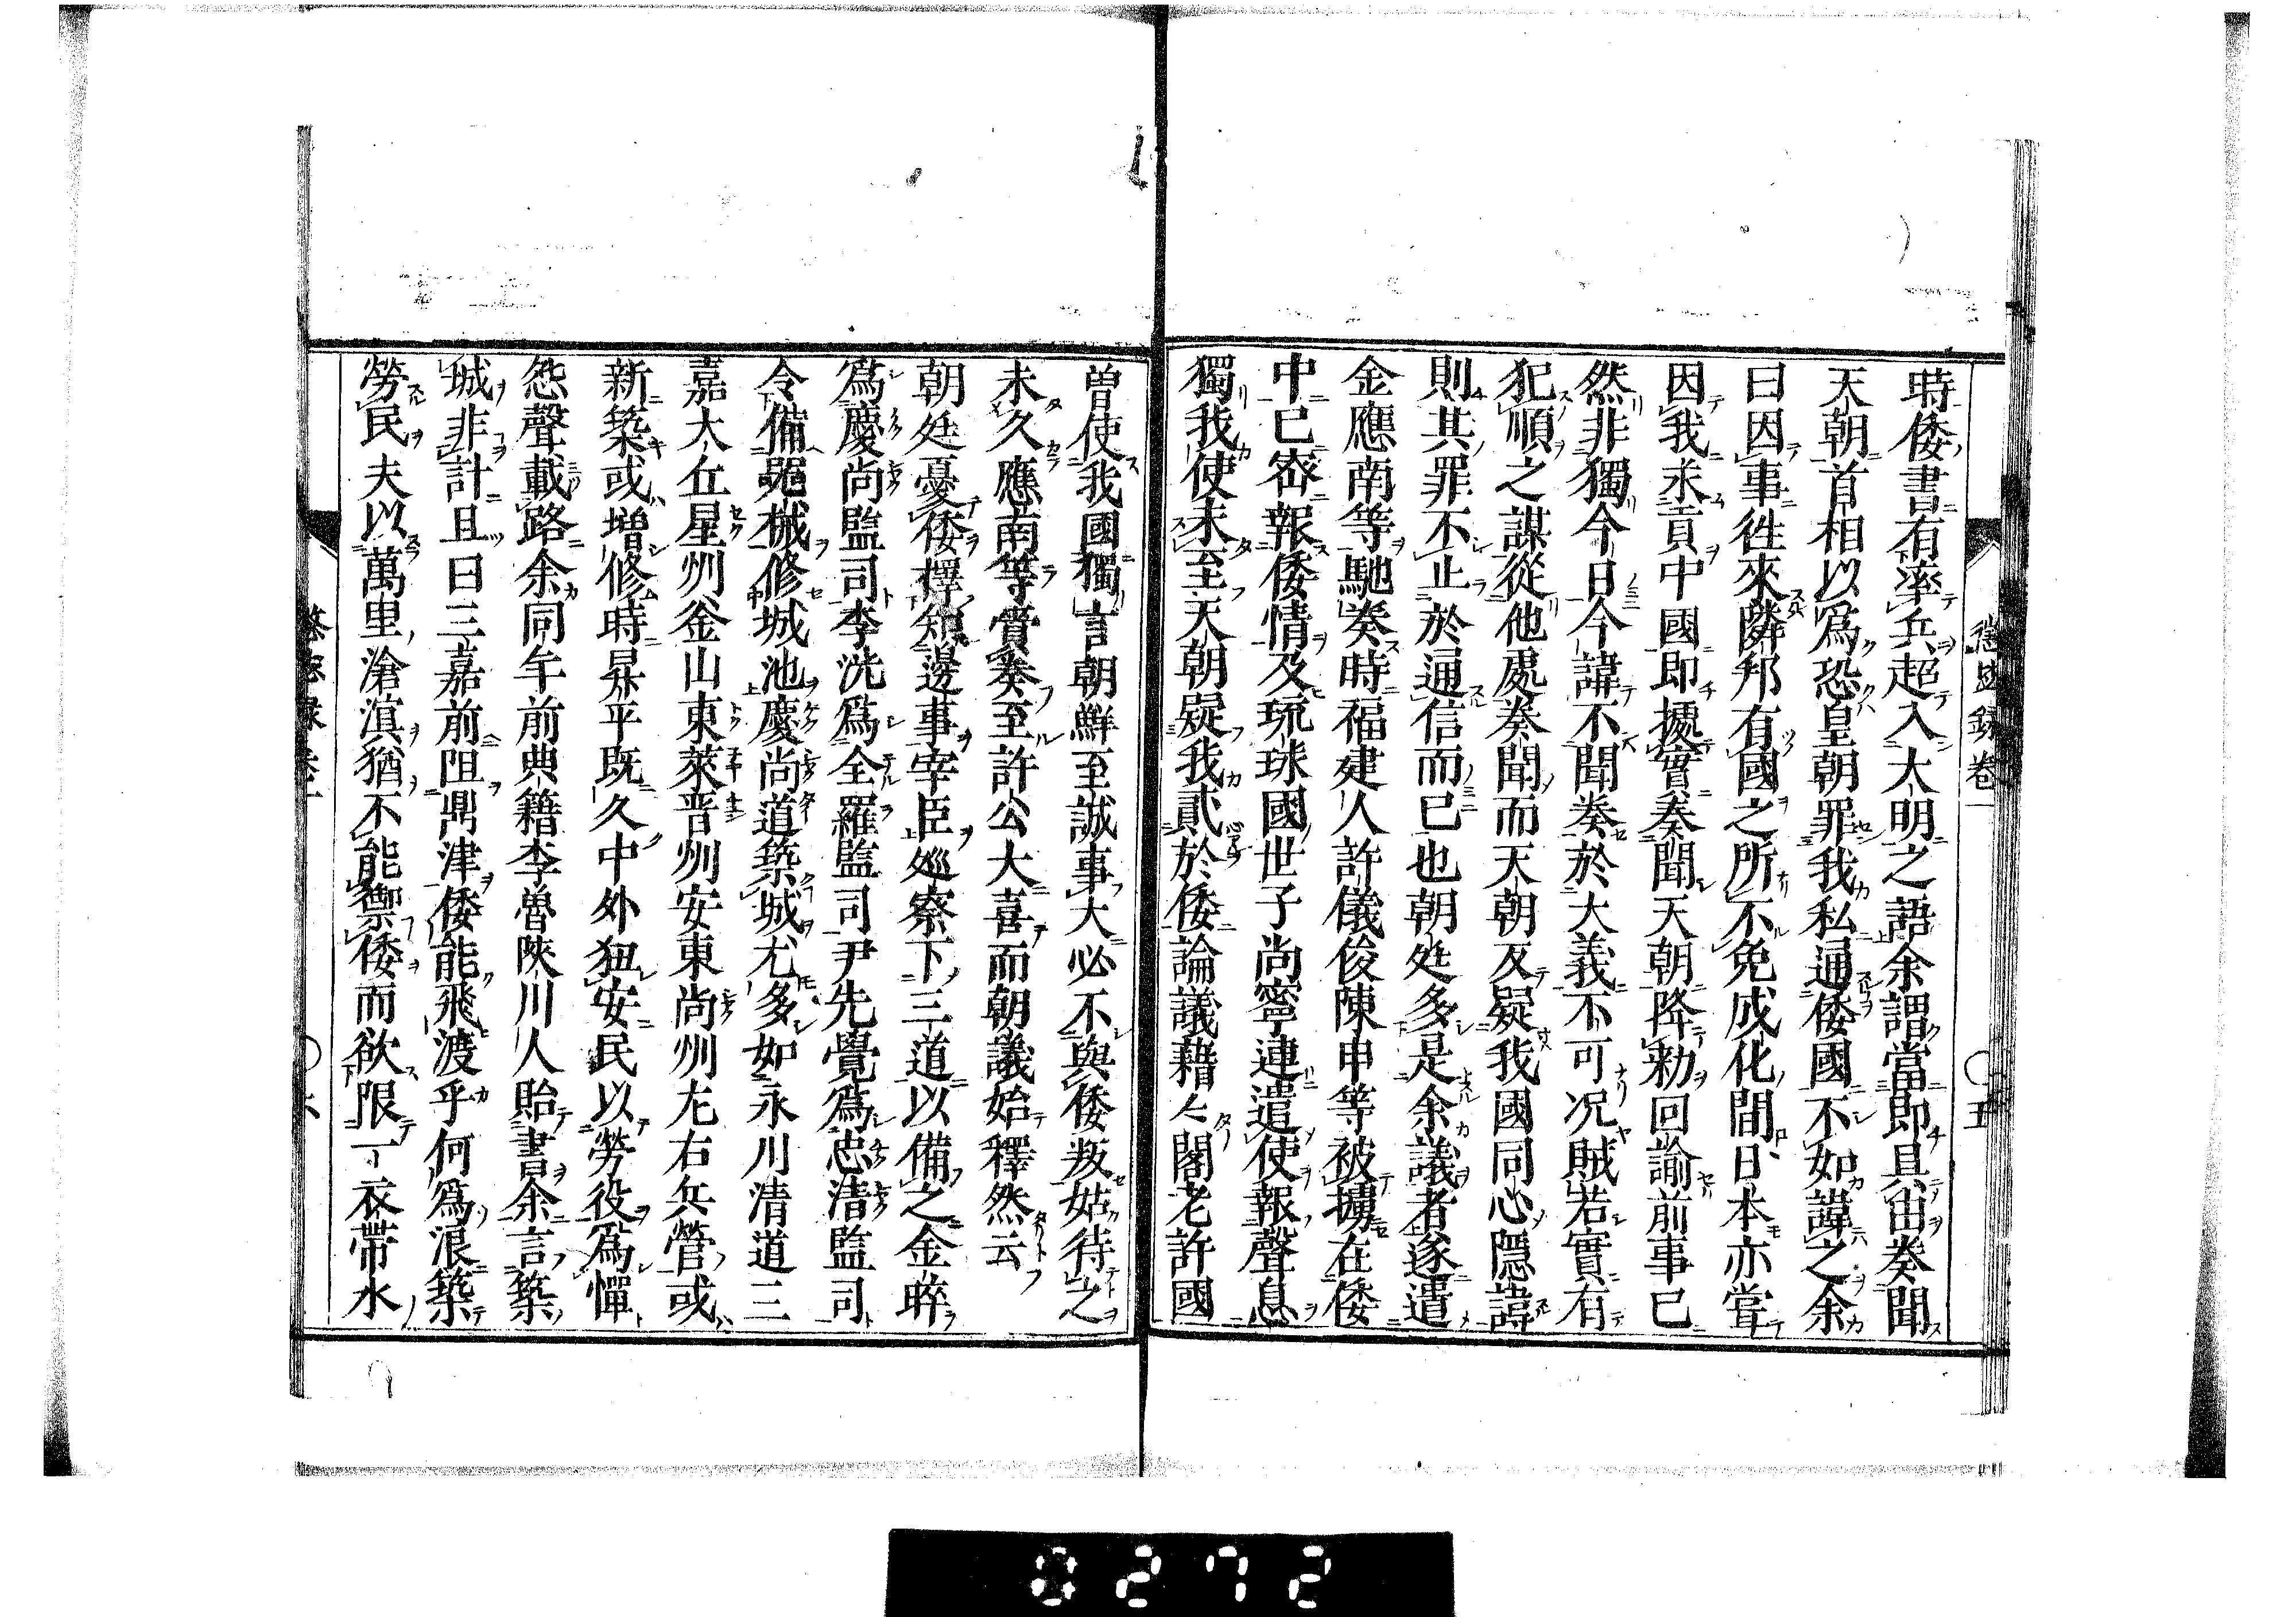 懲毖錄卷一
五
時倭書有率兵超入大明之語余謂當即具由奏聞
天朝首相以爲恐皇朝罪我私通倭國不如諱之余
曰因事徃來隣邦有國之所不免成化間日本亦嘗
因我求貢中國即據實奏聞天朝降勅回諭前事已
然非獨今日今諱不聞奏於大義不可况賊若實有
犯順之謀從他處奏聞而天朝反疑我國同心隱諱
則其罪不止於通信而已也朝廷多是余議者遂遣
金應南等馳奏時福建人許儀俊陳申等被擄在倭
中已宻報倭情及琉球國世子尚寧連遣使報聲息
獨我使未至天朝疑我貳於倭論議藉々閣老許國
曽使我國獨言朝鮮至誠事大必不與倭叛姑待之
未久應南等賫奏至許公大喜而朝議始釋然云
朝廷憂倭擇知邊事宰臣廵察下三道以備之金睟
爲慶尚監司李洸爲全羅監司尹先覺爲忠淸監司
令備器械修城池慶尚道築城尤多如永川清道三
嘉大丘星州釜山東萊晋州安東尚州左右兵營或
新築或増修時昇平既久中外狃安民以勞役爲憚
怨聲載路余同年前典籍李魯陜川人貽書余言築
城非計且曰三嘉前阻鼎津倭能飛渡乎何爲浪築
勞民夫以萬里滄溟猶不能禦倭而欲限一衣帶水
0272